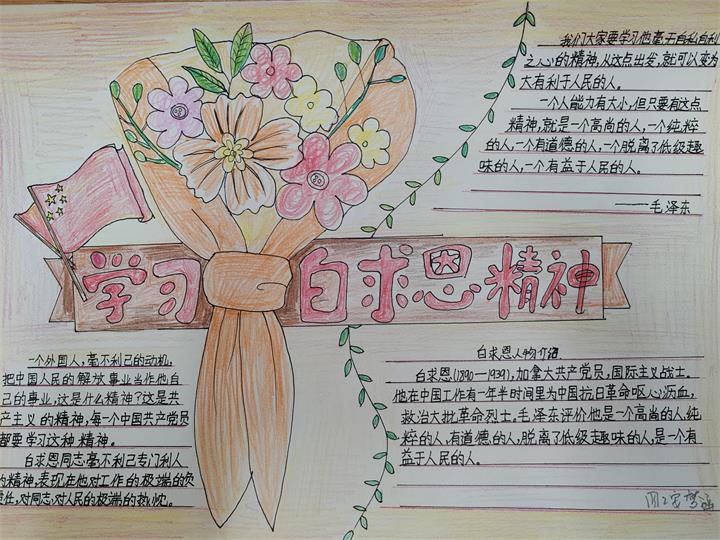 我们大家要学习他毫无自私自利
之人心的精神,从这点出发,就可以变为
大有利于人民的人。
一个人能力有大小,但只要有这点
精神,就是一个高尚的人,一个纯粹
的人,一个有道德的人,一个脱离了低级趣
味的人,一个有益于人民的人。
——毛泽东
学习白求恩精神
一个外国人,毫不利己的动机,
把中国人民的解放事业当作他自
己的事业,这是什么精神?这是共
产主义的精神,每一个中国共产党员
都要学习这种精神。
白求恩同志毫不利己专门利人
的精神,表现在他对工作的极端的负
责任,对同志对人民的极端的热忱。
白求恩人物介绍
白求恩(1890—1939),加拿大共产党员,国际主义战士。
他在中国工作有一年半时间里为中国抗日革命呕心沥血,
救治大批革命烈士。毛泽东评价他是一个高尚的人,纯
粹的人,有道德的人,脱离了低级趣味的人,是一个有
益于人民的人。